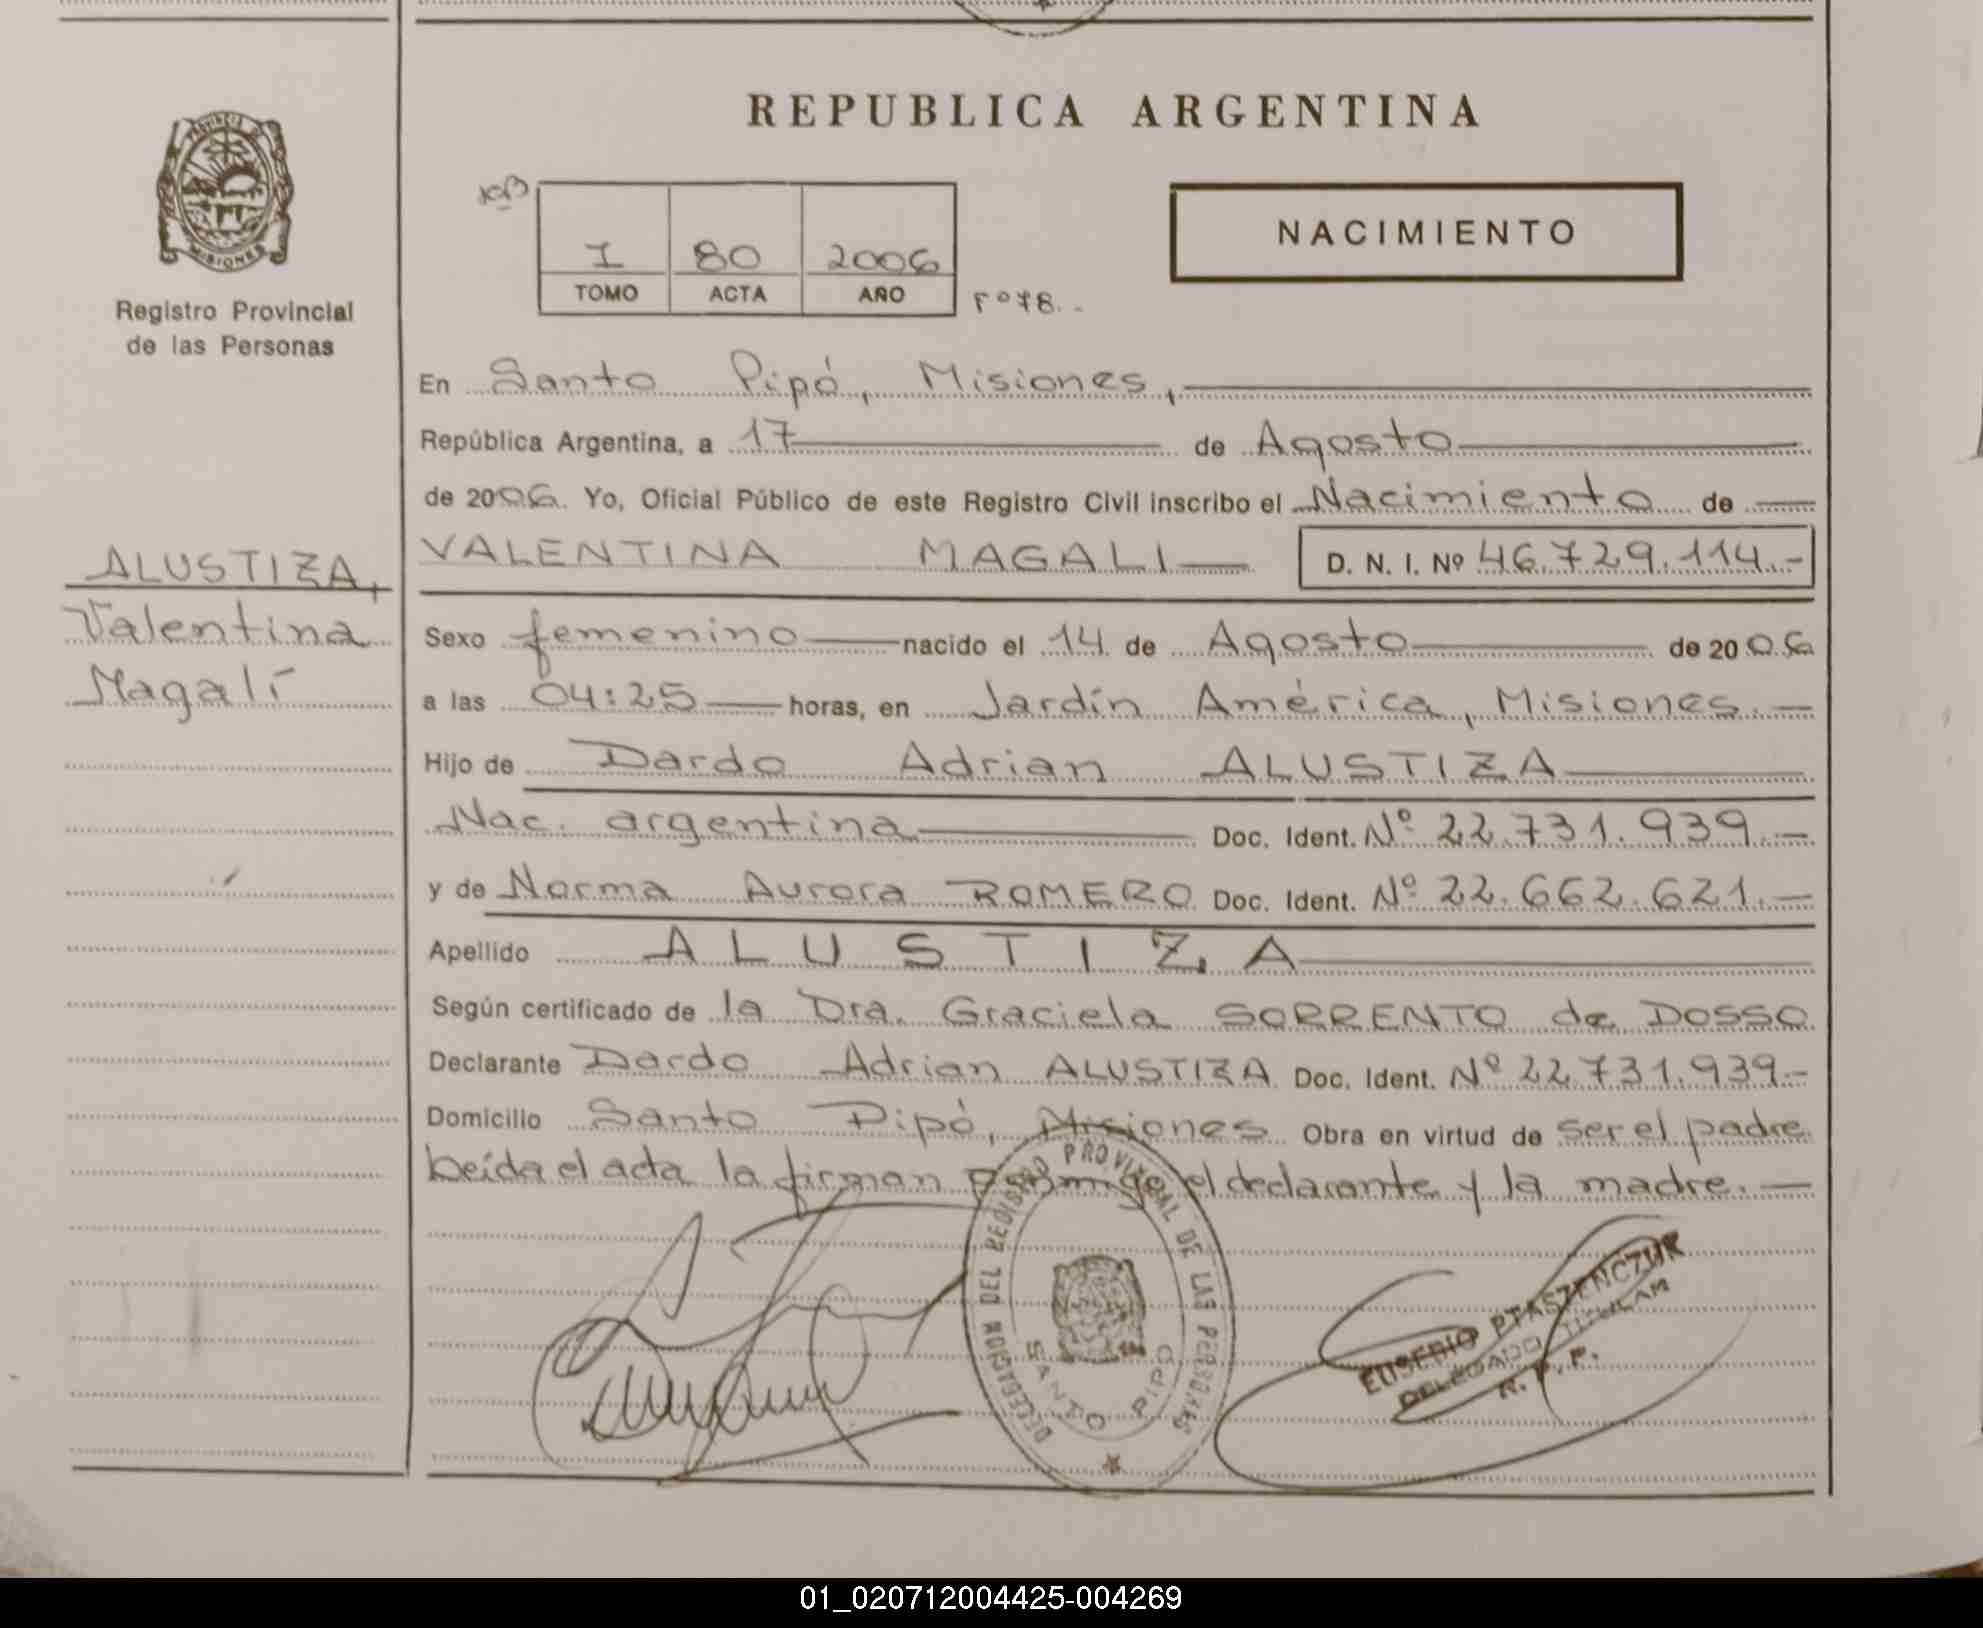 REPUBLICA ARGENTINA
NACIMIENTO
1 80 2006
TOMO ACTA AÑO
Fº 78.-
PROVINCIA DE MISIONES
Registro Provincial
de las Personas
ALUSTIZA,
Valentina
Magalí
En Santo Pipó, Misiones,
República Argentina, a 17 de Agosto
de 2006. Yo, Oficial Público de este Registro Civil inscribo el Nacimiento de
VALENTINA MAGALI D. N. I. Nº 46.729.114.-
Sexo femenino nacido el 14 de Agosto de 2006
a las 04:25 horas, en Jardín América, Misiones.-
Hijo de Dardo Adrian ALUSTIZA
Nac. argentina Doc. Ident. Nº 22.731.939.-
y de Norma Aurora ROMERO Doc. Ident. Nº 22.662.621.-
Apellido ALUSTIZA
Según certificado de la Dra. Graciela SORRENTO de DOSSO
Declarante Dardo Adrian ALUSTIZA Doc. Ident. Nº 22.731.939.-
Domicilio Santo Pipó, Misiones Obra en virtud de ser el padre
Leída el acta la firman conmigo el declarante y la madre.-
DELEGACION DEL REGISTRO PROVINCIAL DE LAS PERSONAS
SANTO PIPO
EUSEBIO PTASZENCZUK
DELEGADO TITULAR
R. P. P.
01_020712004425-004269